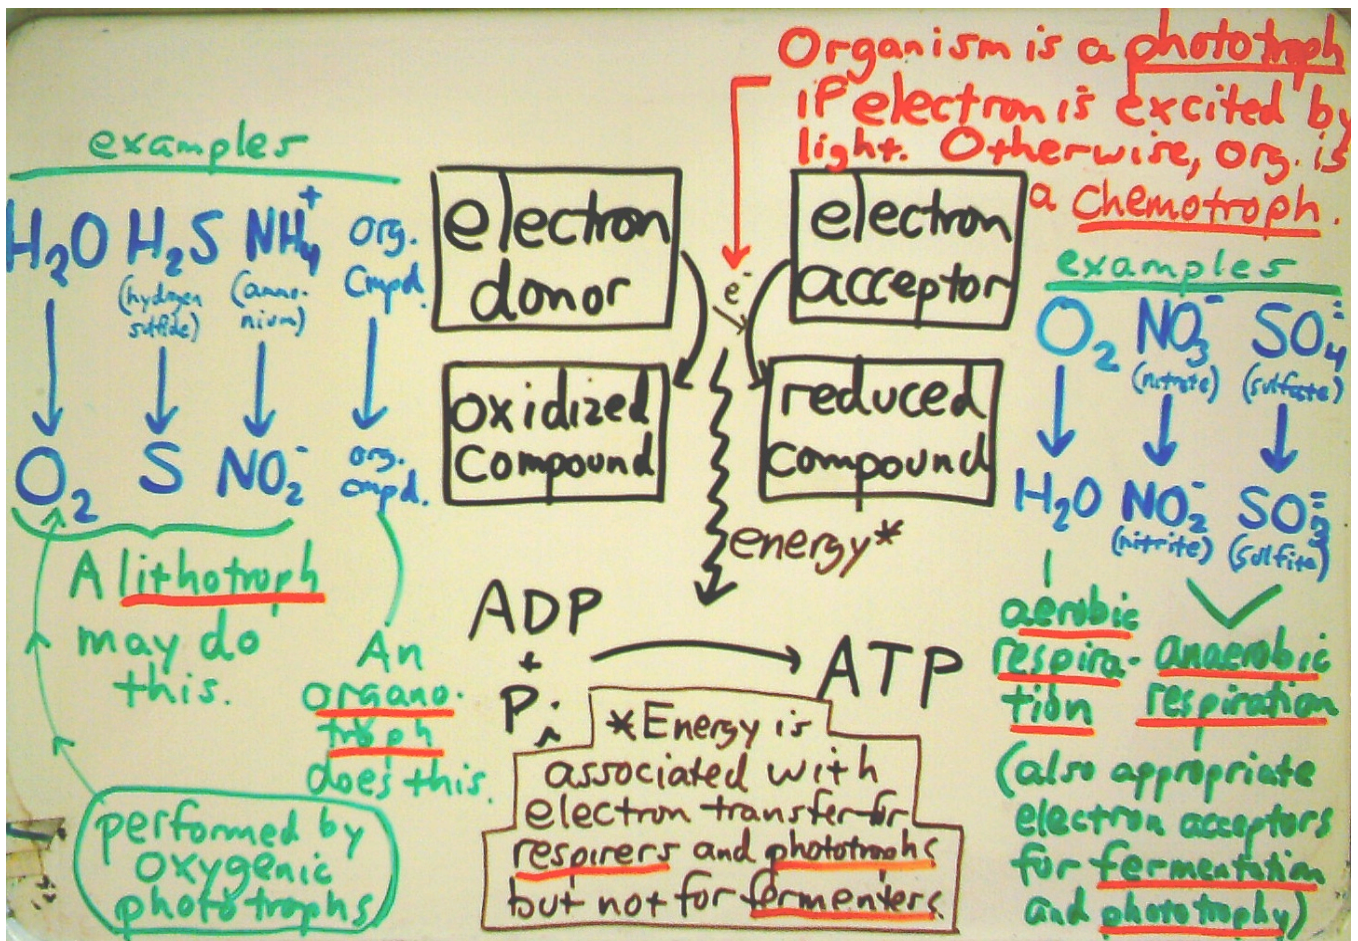 Organism is a phototroph
if electron is excited by
light. Otherwise, org. is
a chemotroph.
examples
H₂O H₂S NH₄⁺ org. cmpd.
(hydrogen sulfide) (ammo-nium)
O₂ S NO₂⁻ org. cmpd.
A lithotroph
may do
this.
An
organo-
troph
does this.
performed by
oxygenic
phototrophs
electron
donor
oxidized
compound
e⁻
electron
acceptor
reduced
compound
energy*
ADP
+
Pi
ATP
*Energy is
associated with
electron transfer for
respirers and phototrophs
but not for fermenters.
examples
O₂ NO₃⁻ SO₄⁼
(nitrate) (sulfate)
H₂O NO₂⁻ SO₃⁼
(nitrite) (sulfite)
aerobic
respira-
tion
anaerobic
respiration
(also appropriate
electron acceptors
for fermentation
and phototrophy)